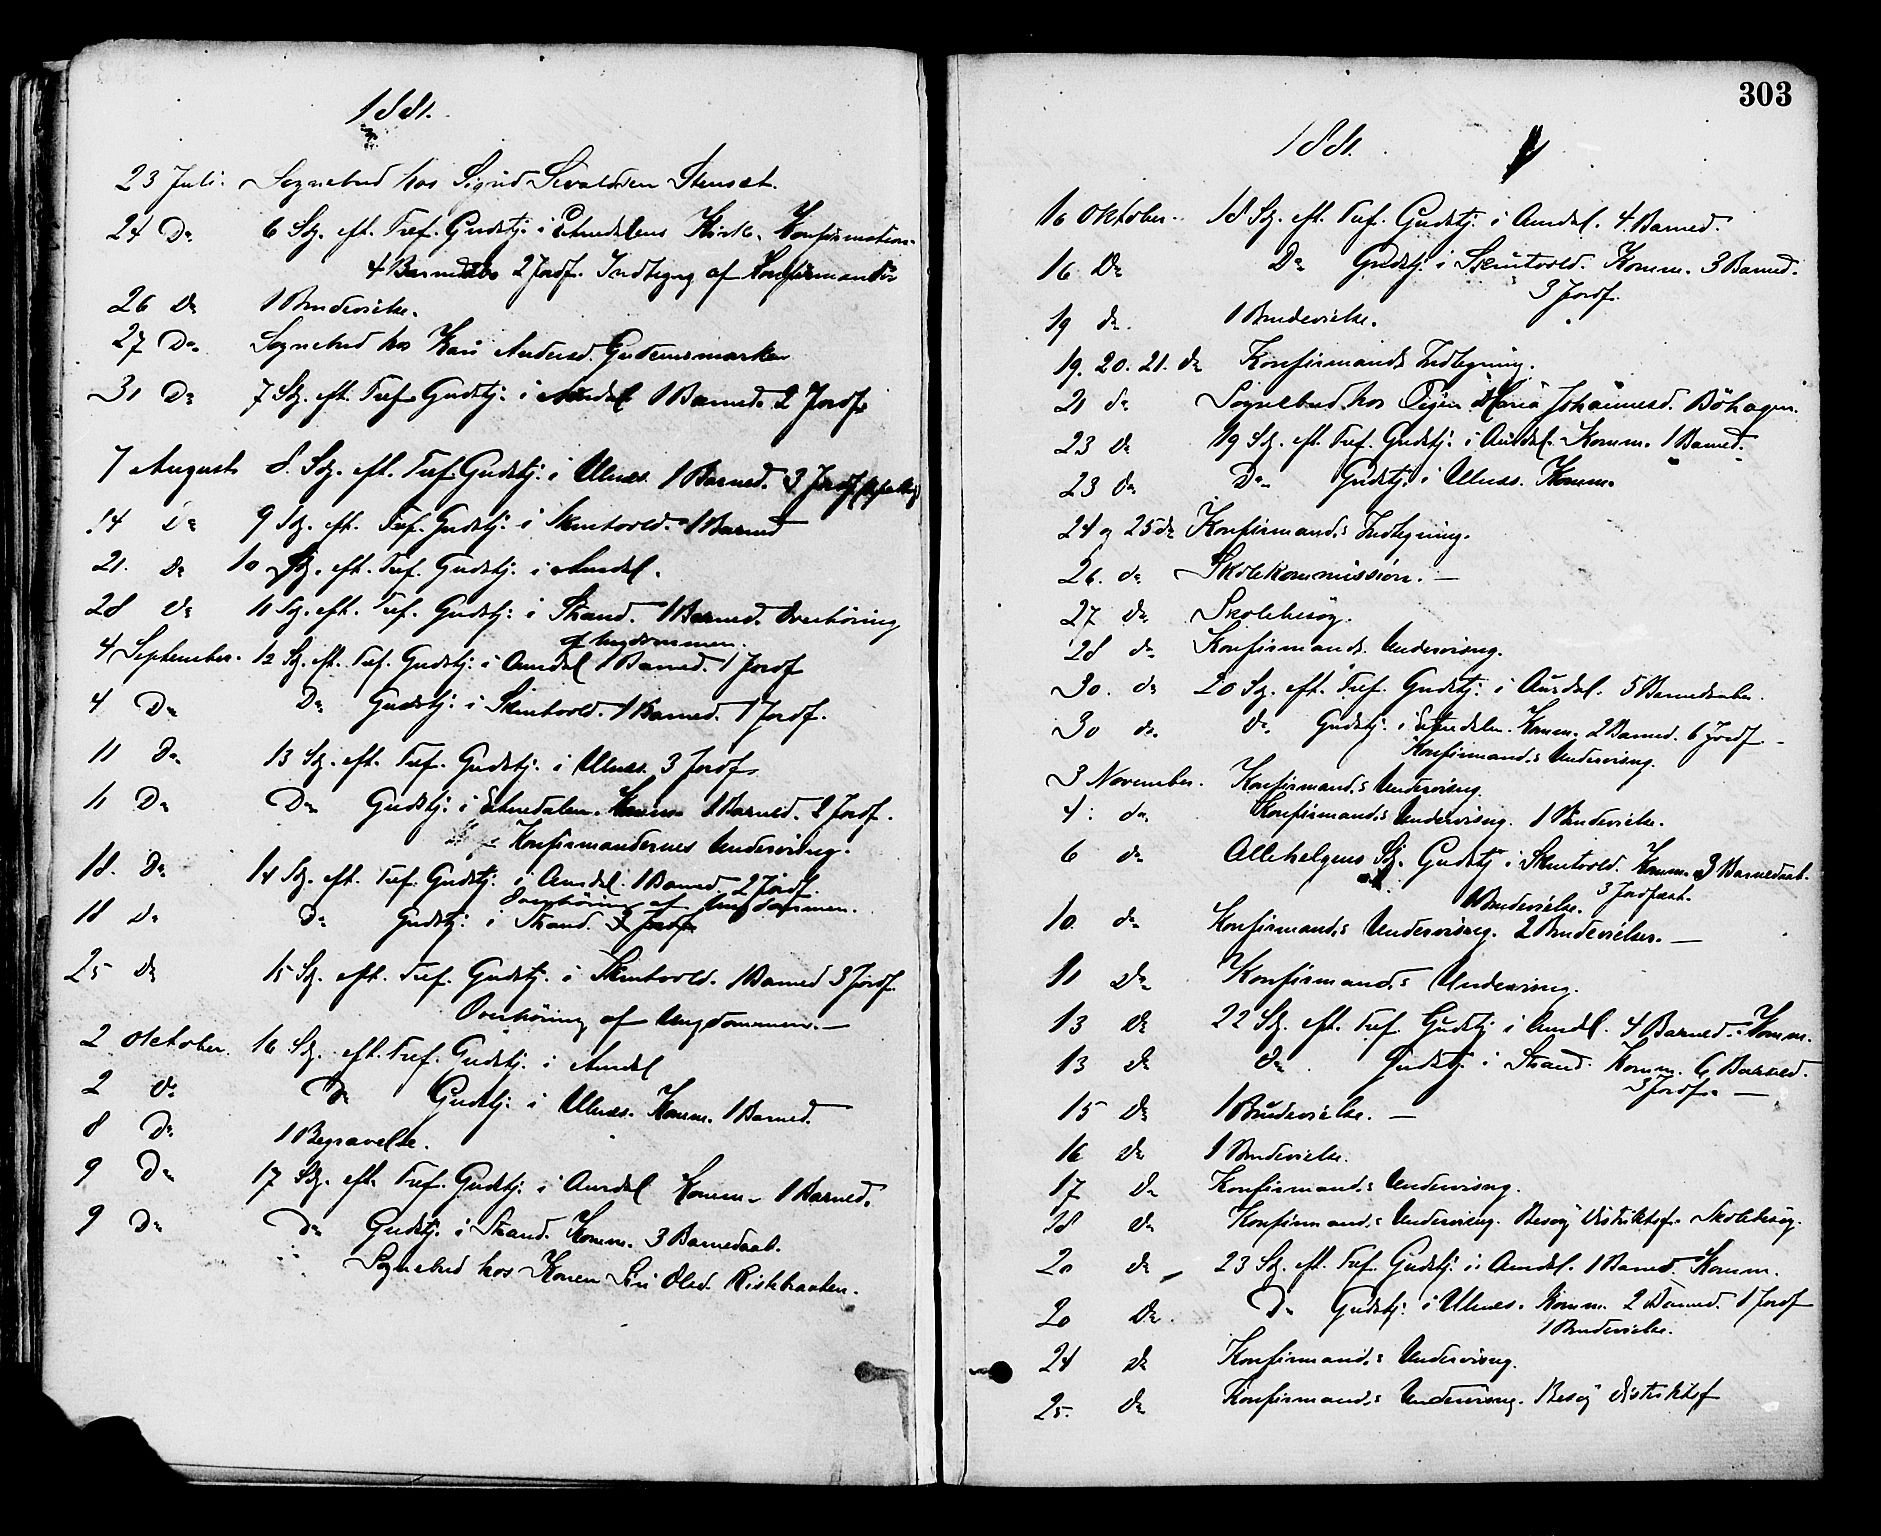 1881.
23 Juli. Sognebud hos Sigrid Sivaldsen Stensæt.
24 Do 6 Sg. eft. Tref. Gudstj. i Etnedalens Kirke. Konfirmation.
4 Barnedåb 2 Jordf. Indtegng af Konfirmander
26 Do 1 Brudevielse.
27 Do. Sognebud hos Kari Andersd.
31 Do 7 Sg. eft. Tref. Gudstj. i Aurdal 1 Barned. 2 Jordf.
7 August 8. Sg. eft. Tref. Gudstj. i Ulnæs. 1 Barned. 3 Jordf.
14 Do 9 Sg. eft. Tref. Gudstj. i Skrutvold. 1 Barned
21. Do 10 Sg. eft. Tref. Gudstj. i Aurdal.
28 do 11 Sg. eft. Tref. Gudstj. i Strand. 1 Barned. Overhöring
af Ungdommen.
4 September. 12 Sg. eft. Tref. Gudstj. i Aurdal 1 Barned. 1 Jordf
4 Do Do Gudstj. i Skrutvold. 1 Barned. 1 Jordf.
11 do. 13 Sg. eft. Tref. Gudstj. i Ulnæs. 3 Jordf.
11 Do Do Gudstj. i Etnedalen. Komm 1 Barned. 2 Jordf.
Konfirmandernes Undervisng.
18. Do 14 Sg. eft. Tref. Gudstj. i Aurdal. 1 Barned. 2 Jordf.
Overhöring af Ungdommen.
18 Do do Gudstj. i Strand. 3 Jordf.
25 Do 15 Sg. eft. Tref. Gudstj. i Skrutvold. 1 Barned 3 Jordf.
Overhöring af Ungdommen. —
2 Oktober. 16 Sg. eft. Tref. Gudstj. i Aurdal
2 do Do Gudstj. i Ulnæs. Komm. 1 Barned.
8 Do 1 Begravelse.
9 Do 17 Sg. eft. Tref. Gudstj. i Aurdal Komm. 1 Barned.
9 Do Do Gudstj. i Strand. Komm. 3 Barnedaab.
Sognebud hos Konen Siri Olsd.
303
1881.
16 Oktober. 18 Sg. eft. Tref. Gudstj. i Aurdal. 4 Barned.
16 Do Do Gudstj. i Skrutvold. Komm. 3 Barned.
3 Jordf.
19 do. 1 Brudevielse.
19. 20. 21. do Konfirmands Indtegning.
21 do Sognebud hos Pigen Maria Johannesd. Böhagen.
23 do 19 Sg. eft. Tref. Gudstj. i Aurdal. Komm. 1 Barned.
23 do Do Gudstj. i Ulnæs. Komm.
24 og 25 do Konfirmands Indtegning.
26. do Skolekommission. —
27 do Skolebesög.
28 do Konfirmands Undervisng.
30. do 20 Sg. eft. Tref. Gudstj. i Aurdal. 5 Barnedaabe.
30 do. do Gudstj. i Etnedalen. Komm. 2 Barned. 6 Jordf —
Konfirmands Undervisng.
3 November. Konfirmands Undervisng.
4. do. Konfirmands Undervisng. 1 Brudevielse.
6 do Allehelgens Sg. Gudstj i Skrutvold. Komm. 3 Barnedaab.
3 Jordfæst.
1 Brudevielse.
10. do Konfirmands Undervisng. 2 Brudevielser. —
11 Do Konfirmands Undervisng.
13 do 22 Sg. eft. Tref. Gudstj i Aurdal. 4 Barned. Komm.
13 do do Gudstj i Strand. Komm. 6 Barned.
3 Jordf. —
15 do 1 Brudevielse. —
16 do 1 Brudevielse.
17 do Konfirmands Undervisng.
18 do Konfirmands Undervisng. Besög Distriktsf. Skolebesög.
20 do 23 Sg. eft. Tref. Gudstj. i Aurdal. 1 Barned. Komm.
20 Do. Do Gudstj. i Ulnæs. Komm. 2 Barned. 1 Jordf
1 Brudevielse.
24 do Konfirmands Undervisng.
25. do Konfirmands Undervisng. Besög Distriktsf